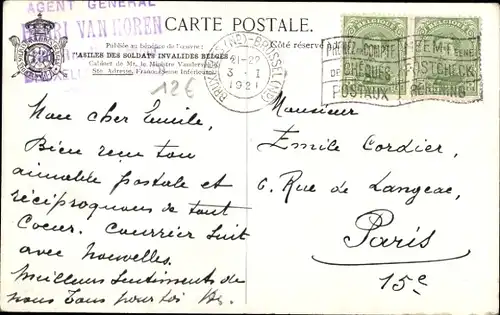 AGENT GENERAL
HENRI VAN KOREN
CARTE POSTALE.
Publiée au bénéfice de l'œuvre:
L'ASILE DES SOLDATS INVALIDES BELGES
Cabinet de Mr. le Ministre Vandervelde
Ste Adresse, France (Seine Inférieure)
Côté réservé
12€
BRUXELLES (ND) - BRUSSEL (ND)
21-22
3 - I
1921
BELGIQUE
PRENEZ UN COMPTE
DE CHÈQUES
POSTAUX
NEEMT EENE
POSTCHECK
REKENING
Mon cher Emile,
Bien reçu ton
aimable postale et
réciproquons de tout
Coeur. Courrier suit
avec nouvelles.
Meilleurs sentiments de
nous tous pour toi
Monsieur
Emile Cordier,
6. Rue de Langeac,
Paris
15e